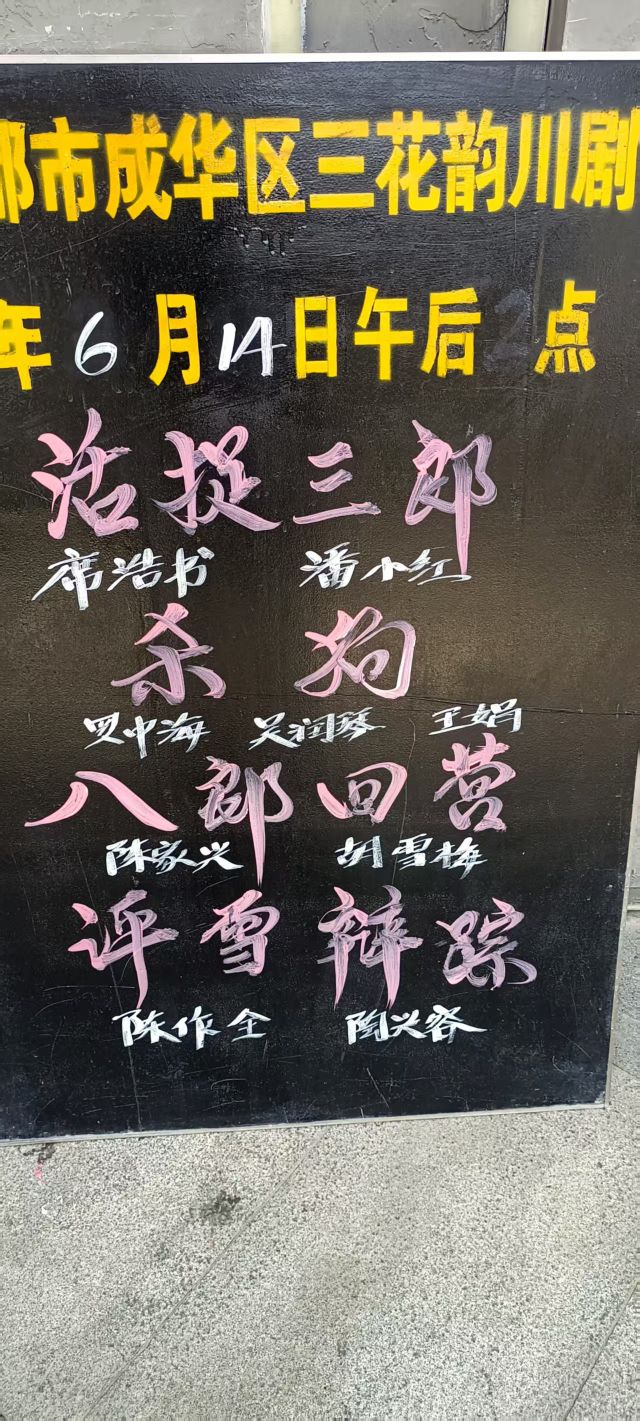 都市成华区三花韵川剧
年6月14日午后2点
活捉三郎
席浩书 潘小红
杀狗
罗中海 吴润琴 王娟
八郎回营
陈家兴 胡雪梅
评雪辩踪
陈作全 陶兴容